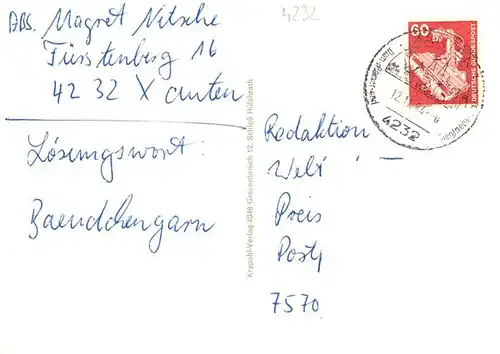 4232
ABS. Magret Nitsche
Fürstenberg 16
4232 Xanten
Lösungswort:
Baendchengarn
Krapohl-Verlag 4048 Grevenbroich 12, Schloß Hülchrath
60
DEUTSCHE BUNDESPOST
4232
Redaktion
Welt
Preis
Post
7570